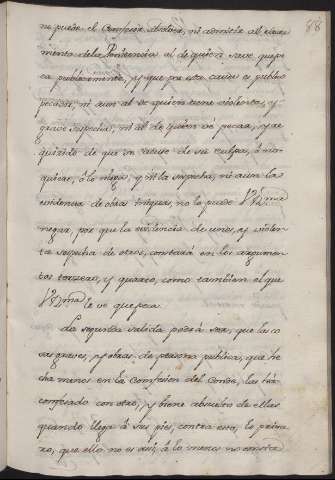 88
ne puede el Confesor absolver, ni admitir al sacra
mento dela Penitencia al de quien save, que pe
ca publicamente, y que por esta causa es publico
pecador, ni aun al de quien tiene violenta, y
grave sospecha, ni al de quien vè pecar, y re
querido de que se acuse de su culpa, ò no
quiere, ò lo niega, y ni la sospecha, ni aun la
evidencia de obras injustas, no lo puede V. Y.ma
negar, por que la evidencia de unos, y violen
ta sospecha de otros, constarà en los argumen
tos tercero, y quarto, como tambien el que
V. Y.ma le ve que peca.
La segunda salida podrà ser, que las co
sas graves, y obras de persona publica, que he
cha menos en la Confesion del Conde, las hà
confesado con otro, y viene absuelto de ellas
quando llega à sus pies, contra esto, lo prime
ro, que ello no es asi, à lo menos no consta